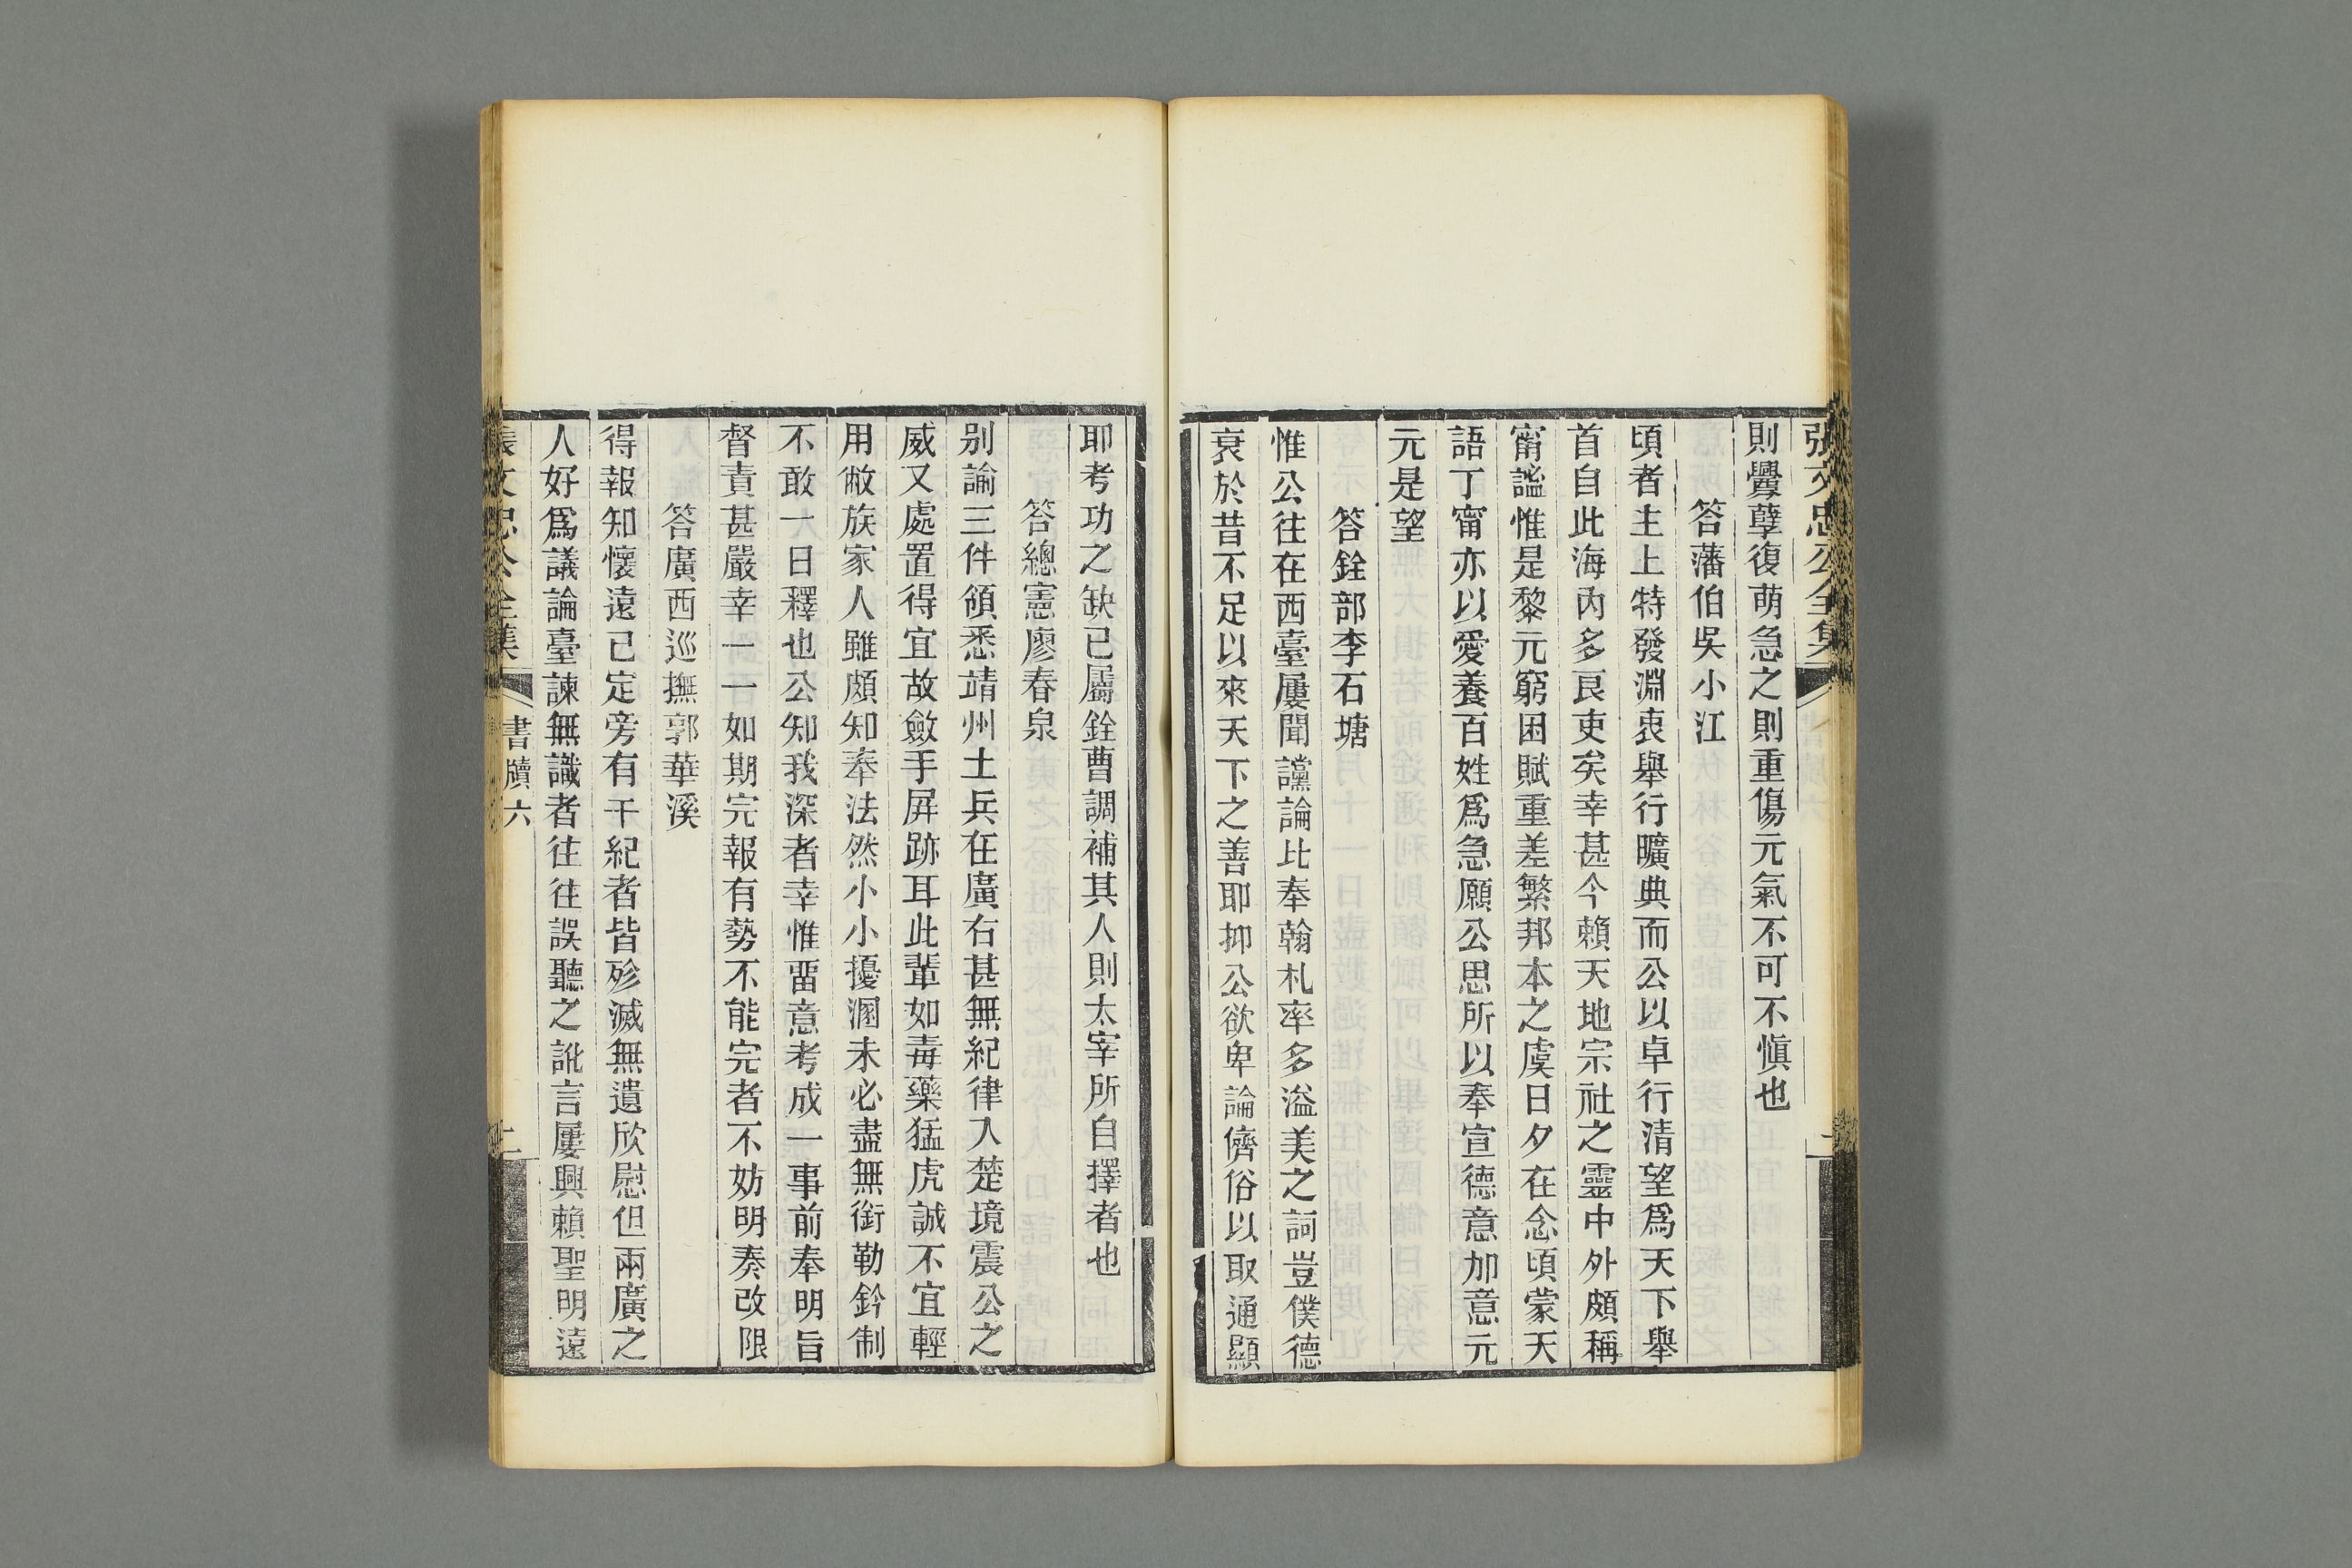 張文忠公全集
則釁孽復萌急之則重傷元氣不可不慎也
答藩伯吳小江
頃者主上特發淵衷舉行曠典而公以卓行清望爲天下舉
首自此海內多良吏矣幸甚今賴天地宗社之靈中外頗稱
甯謐惟是黎元窮困賦重差繁邦本之虞日夕在念頃蒙天
語丁甯亦以愛養百姓爲急願公思所以奉宣德意加意元
元是望
答銓部李石塘
惟公往在西臺屢聞讜論比奉翰札率多溢美之詞豈僕德
衰於昔不足以來天下之善耶抑公欲卑論儕俗以取通顯
耶考功之缺已屬銓曹調補其人則太宰所自擇者也
答總憲廖春泉
別諭三件領悉靖州土兵在廣右甚無紀律入楚境震公之
威又處置得宜故斂手屏跡耳此輩如毒藥猛虎誠不宜輕
用敝族家人雖頗知奉法然小小擾溷未必盡無銜勒鈐制
不敢一日釋也公知我深者幸惟畱意考成一事前奉明旨
督責甚嚴幸一一如期完報有勢不能完者不妨明奏改限
答廣西巡撫郭華溪
得報知懷遠已定旁有干紀者皆殄滅無遺欣慰但兩廣之
人好爲議論臺諫無識者往往誤聽之訛言屢興賴聖明遠
張文忠公全集
書牘六
二